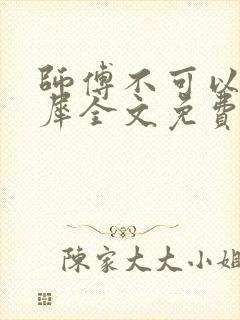 師傅不可以
犀全文免費
陳家大大小姐